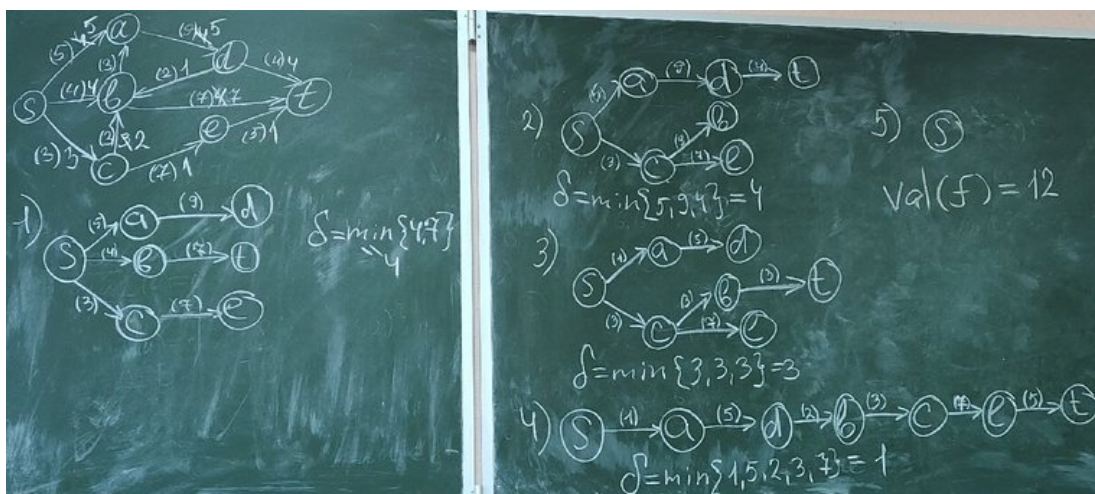 (5) 5 a (9) 5 d
(3) (2) 1 (4) 4
s (4) 4 b (7) 7 t
(3) 3 2 e (5) 1
c (7) 1
1) s (5) a (9) d
(4) b (7) t
(3) c (7) e
δ = min{4,7}
4
2) s (5) a (9) d (4) t
(3) c b
(7) e
δ=min{5,9,4}=4
3) s (1) a (5) d
(3) c (3) b (3) t
(7) e
δ=min{3,3,3}=3
4) s (1) a (5) d (2) b (3) c (7) e (5) t
δ=min{1,5,2,3,7}=1
5) s
val(f)=12